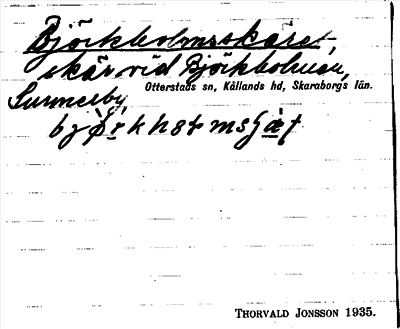 Björkholmsskäret,
skär vid Björkholmen,
Otterstads sn, Kållands hd, Skaraborgs län.
THORVALD JONSSON 1935.